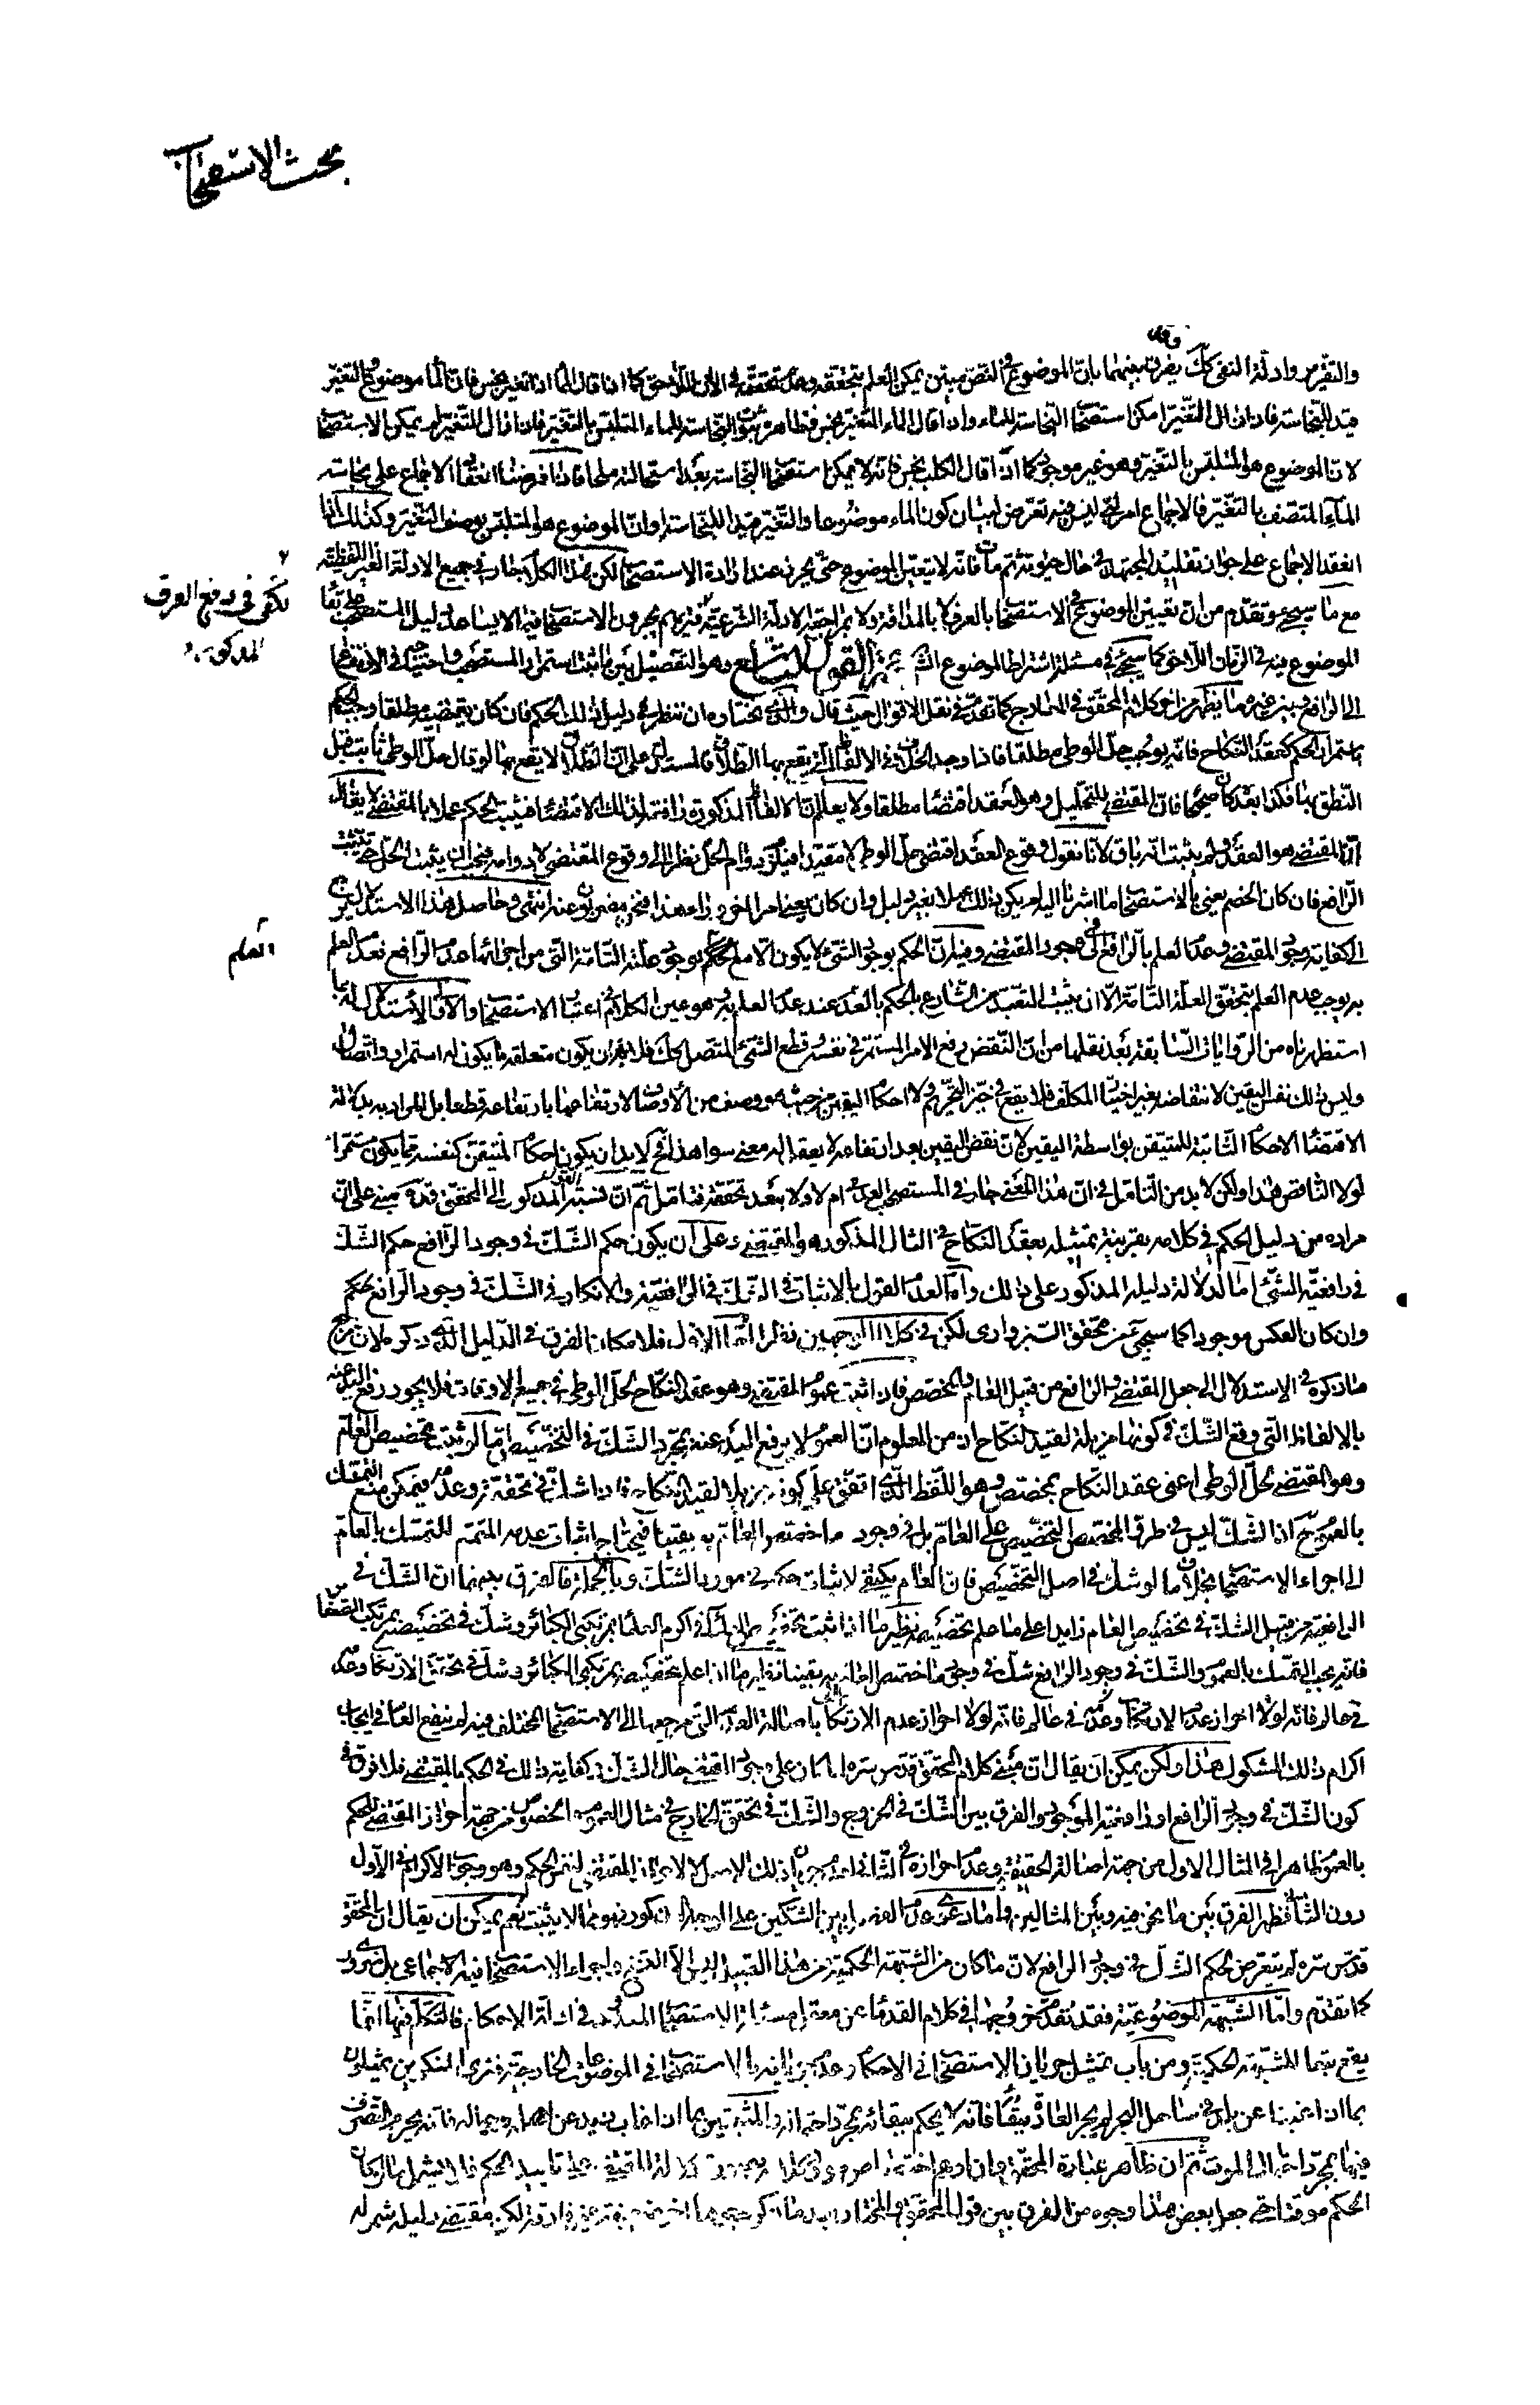 بحث الاستصحاب
والتقرير وادلة النفى كك يفرق بينهما بان الموضوع فى النص مبين يمكن العلم بتحققه وعدم تحققه فى الان اللاحق كما اذا قال الماء اذا تغير نجس فان الماء موضوع والتغير
قيد للنجاسة فاذا زال التغير امكن استصحاب النجاسة للماء واذا قال الماء المتغير نجس فظاهره ثبوت النجاسة للماء المتلبس بالتغير فاذا زال التغير لم يمكن الاستصحاب
لان الموضوع هو المتلبس بالتغير وهو غير موجود كما اذا قال الكلب نجس فانه لا يمكن استصحاب النجاسة بعد استحالته ملحا فاذا فرضنا انعقاد الاجماع على نجاسة
الماء المتصف بالتغير فالاجماع امر لبى ليس فيه تعرض لبيان كون الماء موضوعا والتغير قيدا للنجاسة او ان الموضوع هو المتلبس بوصف التغير وكذلك اذا
انعقد الاجماع على جواز تقليد المجتهد فى حال حيوته ثم مات فانه لا يتعين الموضوع حتى يحرز عند ارادة الاستصحاب لكن هذا الكلام جار فى جميع الادلة الغير اللفظية
نكتفى فى دفع الفرق
المذكور
مع ما سيجئ وتقدم من ان تعيين الموضوع فى الاستصحاب بالعرف لا بالمداقة ولا بمراجعة الادلة الشرعية فتريهم يجرون الاستصحاب فيما لا يساعد دليل المستصحب على بقاء
الموضوع فيه فى الزمان اللاحق كما سيجئ فى مسئلة اشتراط الموضوع انش حجة القول التاسع وهو التفصيل بين ما ثبت استمرار المستصحب واحتياجه فى الارتفاع
الى الرافع وبين غيره ما يظهر من اخر كلام المحقق فى المعارج كما تقدم فى نقل الاقوال حيث قال والذى نختاره ان ننظر فى دليل ذلك الحكم فان كان يقتضيه مطلقا وجب الحكم
باستمرار الحكم كعقد النكاح فانه يوجب حل الوطى مطلقا فاذا وجد الخلاف فى الالفاظ التى يقع بها الطلاق فالمستدل على ان الطلاق لا يقع بها لو قال حل الوطى ثابت قبل
النطق بها فكذا بعده كان صحيحا فان المقتضى للتحليل وهو العقد اقتضاه مطلقا ولا يعلم ان الالفاظ المذكورة رافعة لذلك الاقتضاء فيثبت الحكم عملا بالمقتضى لا يقال
ان المقتضى هو العقد ولم يثبت انه باق لانا نقول وقوع العقد اقتضى حل الوطى لا مقيدا فيلزم دوام الحل نظرا الى وقوع المقتضى لا دوامه فيجب ان يثبت الحل حتى يثبت
الرافع فان كان الخصم يعنى بالاستصحاب ما اشرنا اليه لم يكن ذلك عملا بغير دليل وان كان يعنى امرا اخر وراء هذا فنحن مضربون عنه انتهى وحاصل هذا الاستدلال يرجع
العلم
الى كفاية وجود المقتضى وعدم العلم بالرافع فى وجود المقتضى وفيه ان الحكم بوجود الشئ لا يكون الا مع العلم بوجود علته التامة التى من اجزائها عدم الرافع فعدم العلم
به يوجب عدم العلم بتحقق العلة التامة الا ان يثبت التعبد من الشارع بالحكم بالعدم عند عدم العلم به وهو عين الكلام فى اعتبار الاستصحاب والاولى الاستدلال له بما
استظهرناه من الروايات السابقة بعد نقلها من ان النقض رفع الامر المستمر فى نفسه وقطع الشئ المتصل كك فلا بد ان يكون متعلقه ما يكون له استمرار واتصال
وليس ذلك نفس اليقين لانتقاضه بغير اختيار المكلف فلا يقع فى حيز التحريم ولا احكام اليقين من حيث هو وصف من الاوصاف لارتفاعها بارتفاعه قطعا بل المراد به بدلالة
الاقتضاء الاحكام الثابتة للمتيقن بواسطة اليقين لان نقض اليقين بعد ارتفاعه لا يعقل له معنى سوا هذا فح لا بد ان يكون احكام المتيقن كنفسه مما يكون مستمرا
لولا الناقض هذا ولكن لا بد من التامل فى ان هذا المعنى جار فى المستصحب العدمى ام لا ولا يبعد تحققه فتامل ثم ان نسبة القول المذكور الى المحقق قده مبنى على ان
مراده من دليل الحكم فى كلامه بقرينة تمثيله بعقد النكاح فى المثال المذكور هو المقتضى وعلى ان يكون حكم الشك فى وجود الرافع حكم الشك
فى رافعية الشئ اما لدلالة دليله المذكور على ذلك واما لعدم القول بالاثبات فى الشك فى الرافعية والانكار فى الشك فى وجود الرافع
وان كان العكس موجودا كما سيجئ عن محقق السبزوارى لكن فى كلا الوجهين نظر اما الاول فلامكان الفرق فى الدليل الذى ذكره لان مرجع
ما ذكره فى الاستدلال الى جعل المقتضى والرافع من قبيل العام والمخصص فاذا ثبت عموم المقتضى وهو عقد النكاح لحل الوطى فى جميع الاوقات فلا يجوز رفع اليد عنه
بالالفاظ التى وقع الشك فى كونها مزيلة لقيد النكاح اذ من المعلوم ان العموم لا يرفع اليد عنه بمجرد الشك فى التخصيص اما لو ثبت تخصيص العام
وهو المقتضى لحل الوطى اعنى عقد النكاح بمخصص وهو اللفظ الذى اتفق على كونه مزيلا لقيد النكاح فاذا شك فى تحققه وعدمه فيمكن منع التمسك
بالعموم ح اذ الشك ليس فى طرو التخصيص على العام بل فى وجود ما خصص العام به يقينا فيحتاج اثبات عدمه المتمم للتمسك بالعام
الى اجراء الاستصحاب بخلاف ما لو شك فى اصل التخصيص فان العام يكفى لاثبات حكمه فى مورد الشك وبالجملة فالفرق بينهما ان الشك فى
الرافعية من قبيل الشك فى تخصيص العام زايدا على ما علم تخصيصه نظير ما اذا ثبت تخصيص العلماء فى اكرم العلماء بمرتكبى الكبائر وشك فى تخصيصه بمرتكب الصغاير
فانه يجب التمسك بالعموم والشك فى وجود الرافع شك فى وجود ما خصص العام به يقينا نظير ما اذا علم تخصيصه بمرتكبى الكبائر وشك فى تحقق الارتكاب وعدمه
فى عالم فانه لولا احراز عدم الارتكاب باصالة العدم التى مرجعها الى الاستصحاب المختلف فيه لم ينفع العام فى ايجاب
اكرام ذلك المشكوك هذا ولكن يمكن ان يقال ان مبنى كلام المحقق قدس سره لما كان على وجود المقتضى حال الشك وكفاية ذلك فى الحكم بالمقتضى فلا فرق فى
كون الشك فى وجود الرافع او رافعية الموجود والفرق بين الشك فى الخروج والشك فى تحقق الخارج فى مثال العموم والخصوص من جهة احراز المقتضى للحكم
بالعموم ظاهرا فى المثال الاول من جهة اصالة الحقيقة وعدم احرازه فى الثانى لعدم جريان ذلك الاصل لا لاحراز المقتضى لنفس الحكم وهو وجوب الاكرام فى الاول
دون الثانى فظهر الفرق بين ما نحن فيه وبين المثالين واما دعوى عدم الفصل بين الشكين على الوجه المذكور فهو مما لا يثبت نعم يمكن ان يقال ان المحقق
قدس سره لم يتعرض لحكم الشك فى وجود الرافع لان ما كان من الشبهة الحكمية من هذا القبيل ليس الا النسخ واجراء الاستصحاب فيه اجماعى بل ضرورى
كما تقدم واما الشبهة الموضوعية فقد تقدم خروجها فى كلام القدماء عن معقد مسئلة الاستصحاب المعدود فى ادلة الاحكام فالتكلم فيها انما
يقع تبعا للشبهة الحكمية ومن باب تمثيل جريان الاستصحاب فى الاحكام وعدم جريانه بالاستصحاب فى الموضوعات الخارجية فترى المنكرين يمثلون
بما اذا غبنا عن بلد فى ساحل البحر لم يجر العادة ببقائه فانه لا يحكم ببقائه بمجرد احتماله والمثبتين بما اذا غاب زيد عن اهله وماله فانه يحرم التصرف
فيها بمجرد احتمال الموت ثم ان ظاهر عبارة المحقق وان اوهم اختصاص مورد كلامه بصورة دلالة المقتضى على تابيد الحكم فلا يشمل ما لو كان
الحكم موقتا حتى جعل بعض هذا وجوه من الفرق بين قول المحقق والمختار بعد ما ذكر وجوها اخر ضعيفة غير فارقة لكن مقتضى دليله شموله